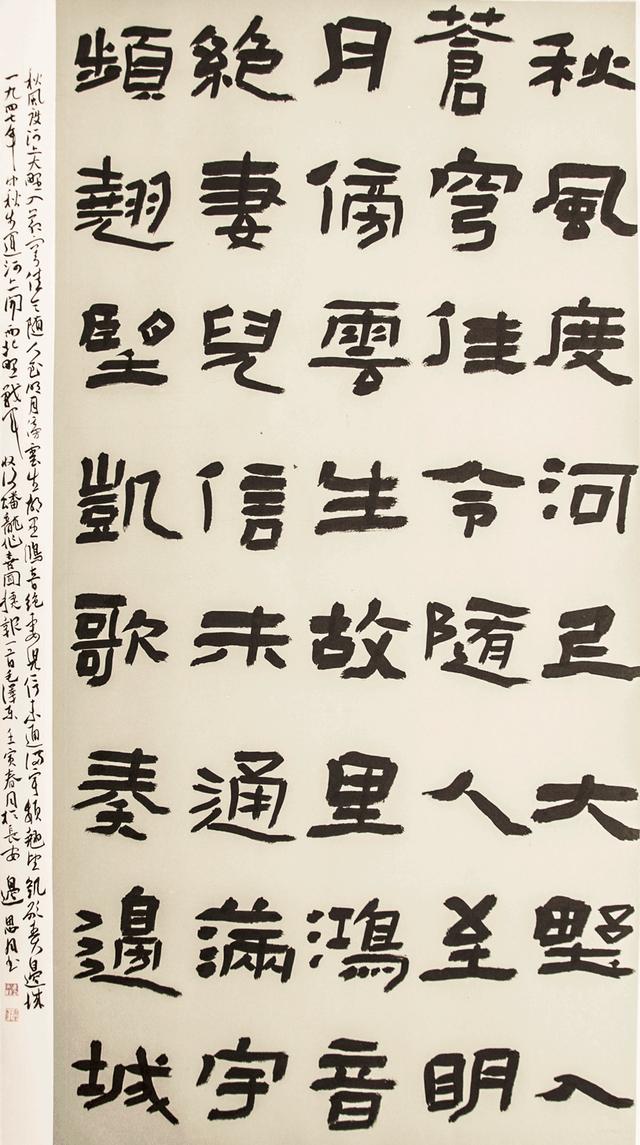 秋風度河上大野入
蒼穹佳令隨人至明
月傍雲生故里鴻音
絕妻兒信未通滿宇
頻翹望凱歌奏邊城
秋風度河上大野入蒼穹佳令隨人至明月傍雲生故里鴻音絕妻兒信未通滿宇頻翹望凱歌奏邊城
一九四七年中秋步運河上聞西北野戰軍收復蟠龍作喜聞捷報一首毛澤東 壬寅春月於長安 邊思